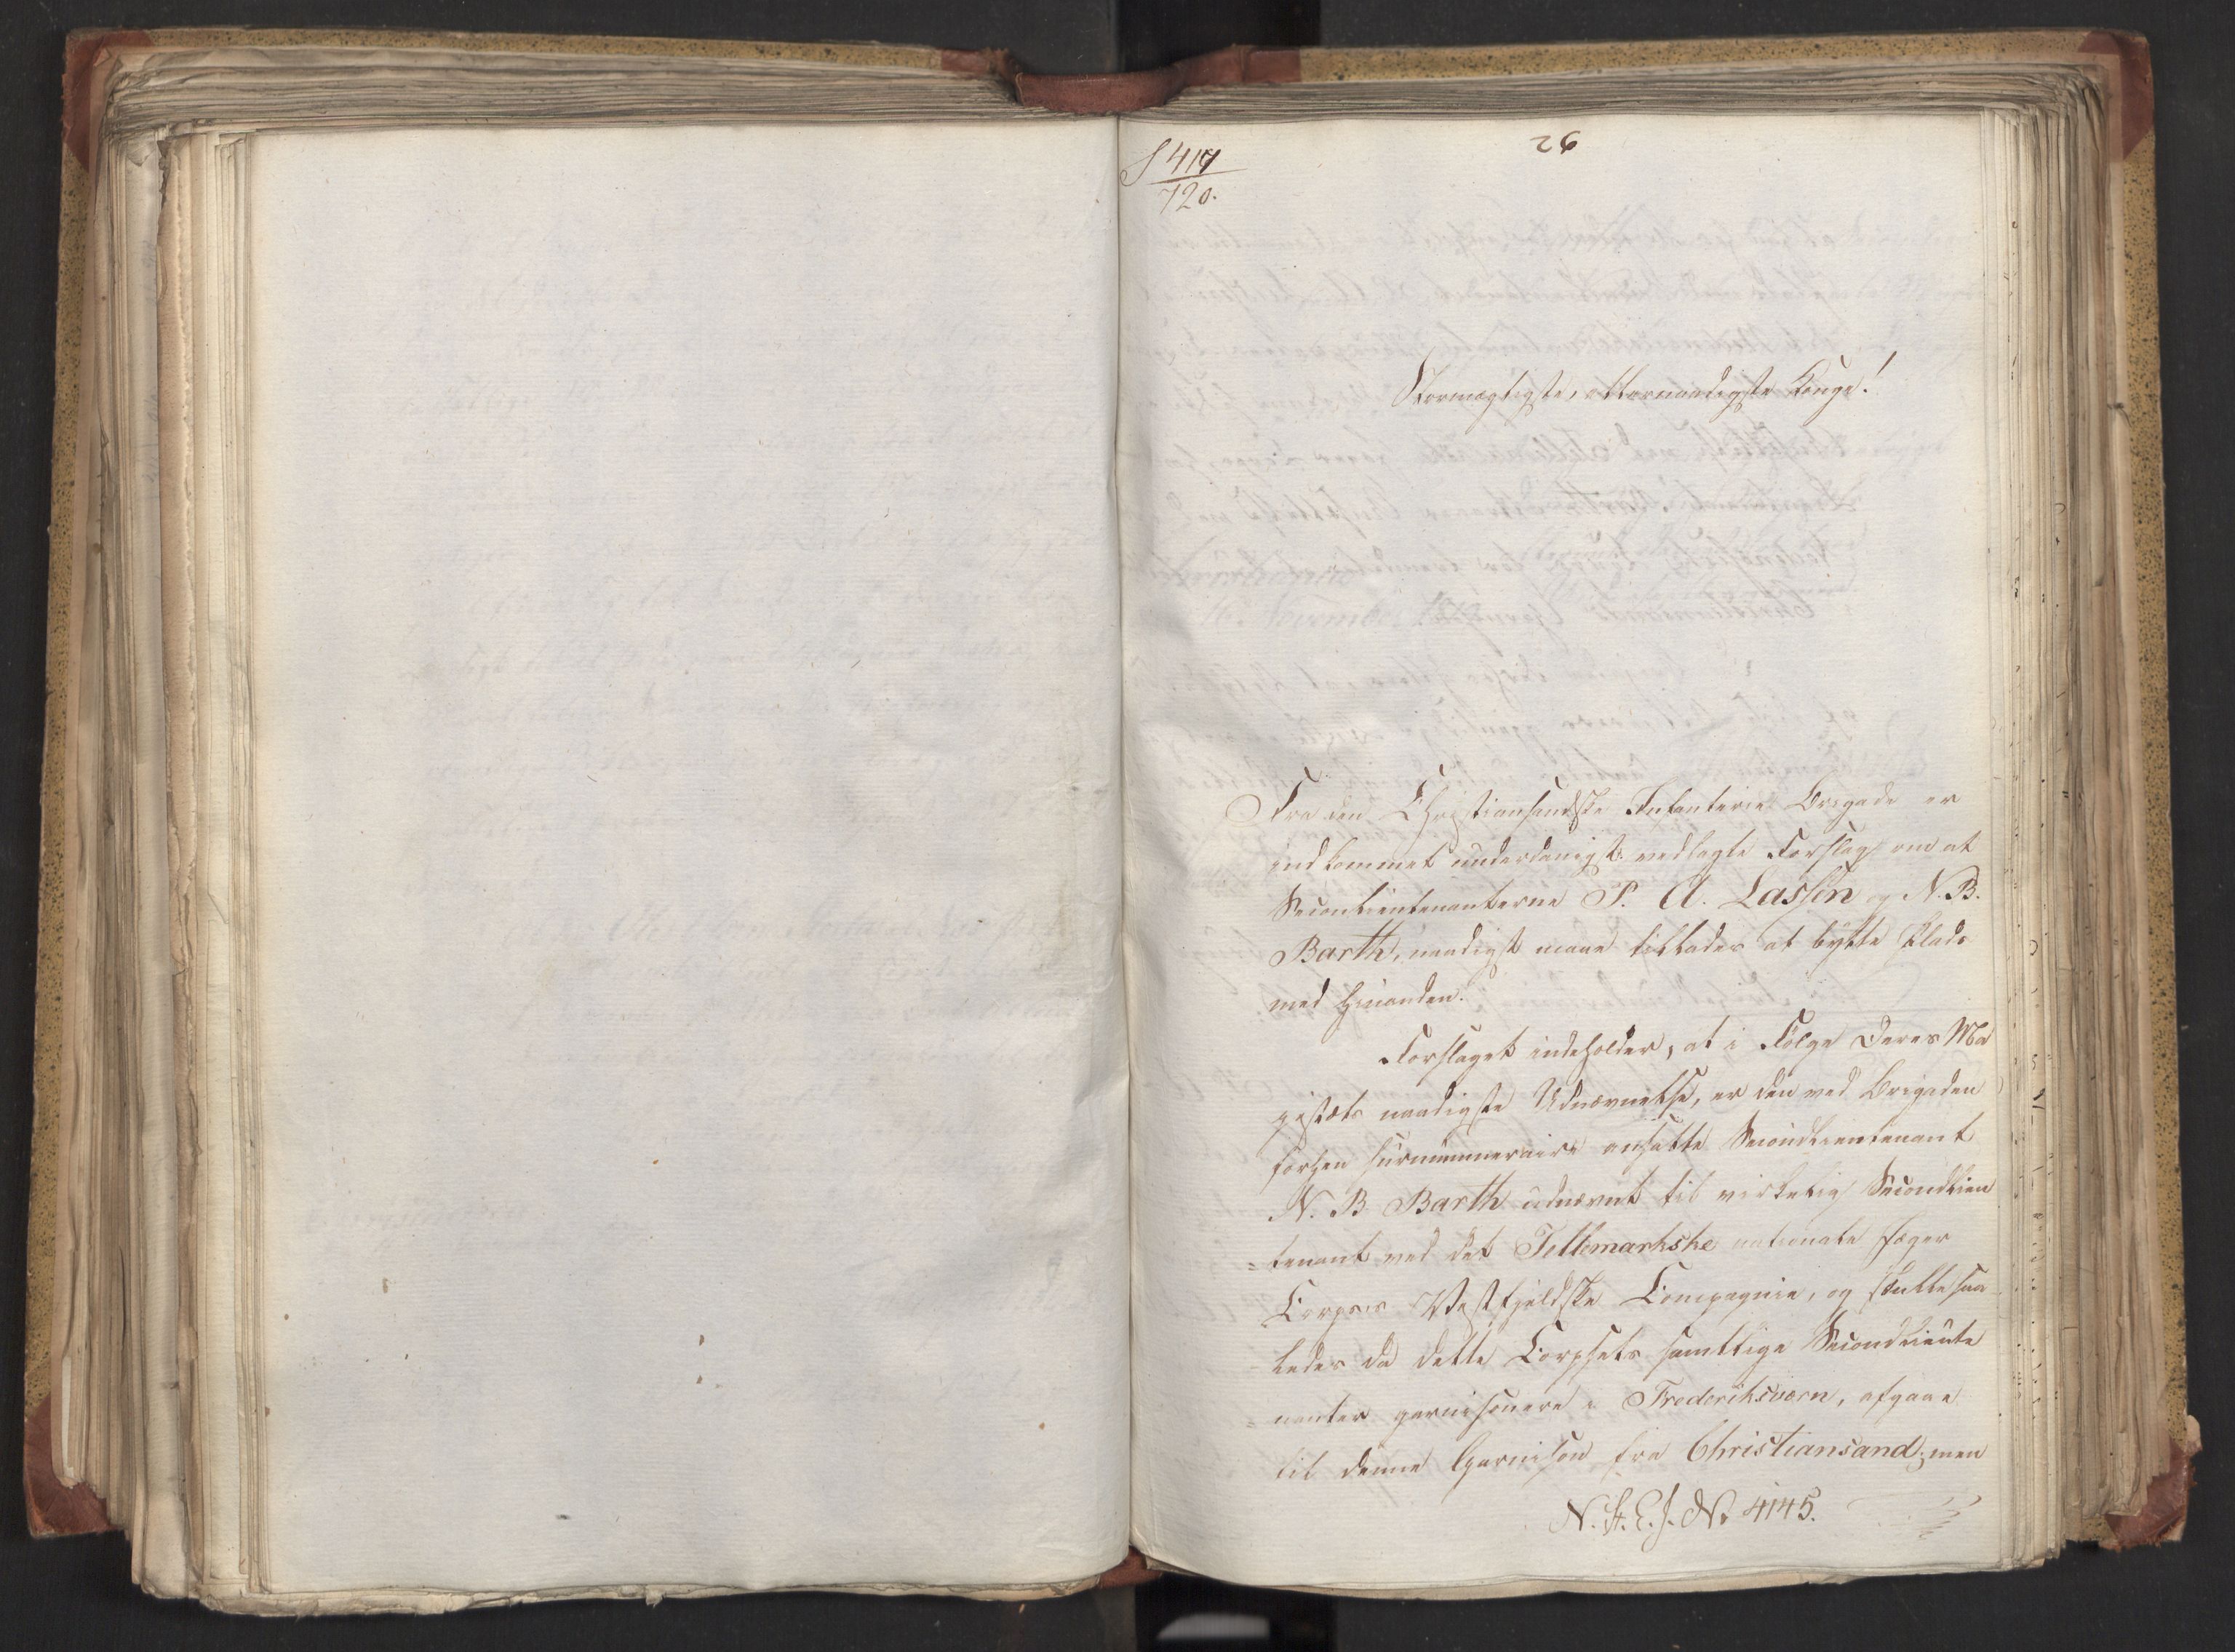 S 414
26
720.
Stormægtigste, allernaadigste Konge!
Fra den Christiansandske Infanterie Brigade er
indkommet underdanigst vedlagte Forslag om at
Secondlieutenanterne P. A. Lassen og N. B.
Barth, naadigst maae tillades at bytte Plads
med hinanden.
Forslaget indeholder, at i Følge Deres Ma
jestæts naadigste Udnævnelse, er den ved Brigaden
forhen surnummeraire ansatte Secondlieutenant
N. B. Barth udnævnt til virkelig Secondlieu
=tenant ved det Tellemarkske nationale Jæger
Corpses Vestfjeldske Compagnie, og skulle saa
ledes da dette Corpsets samtlige Secondlieute
=nanter garnisonere i Frederiksværn, afgaae
til denne Garnison fra Christiansand; men
N. St. E. J. No 4145.